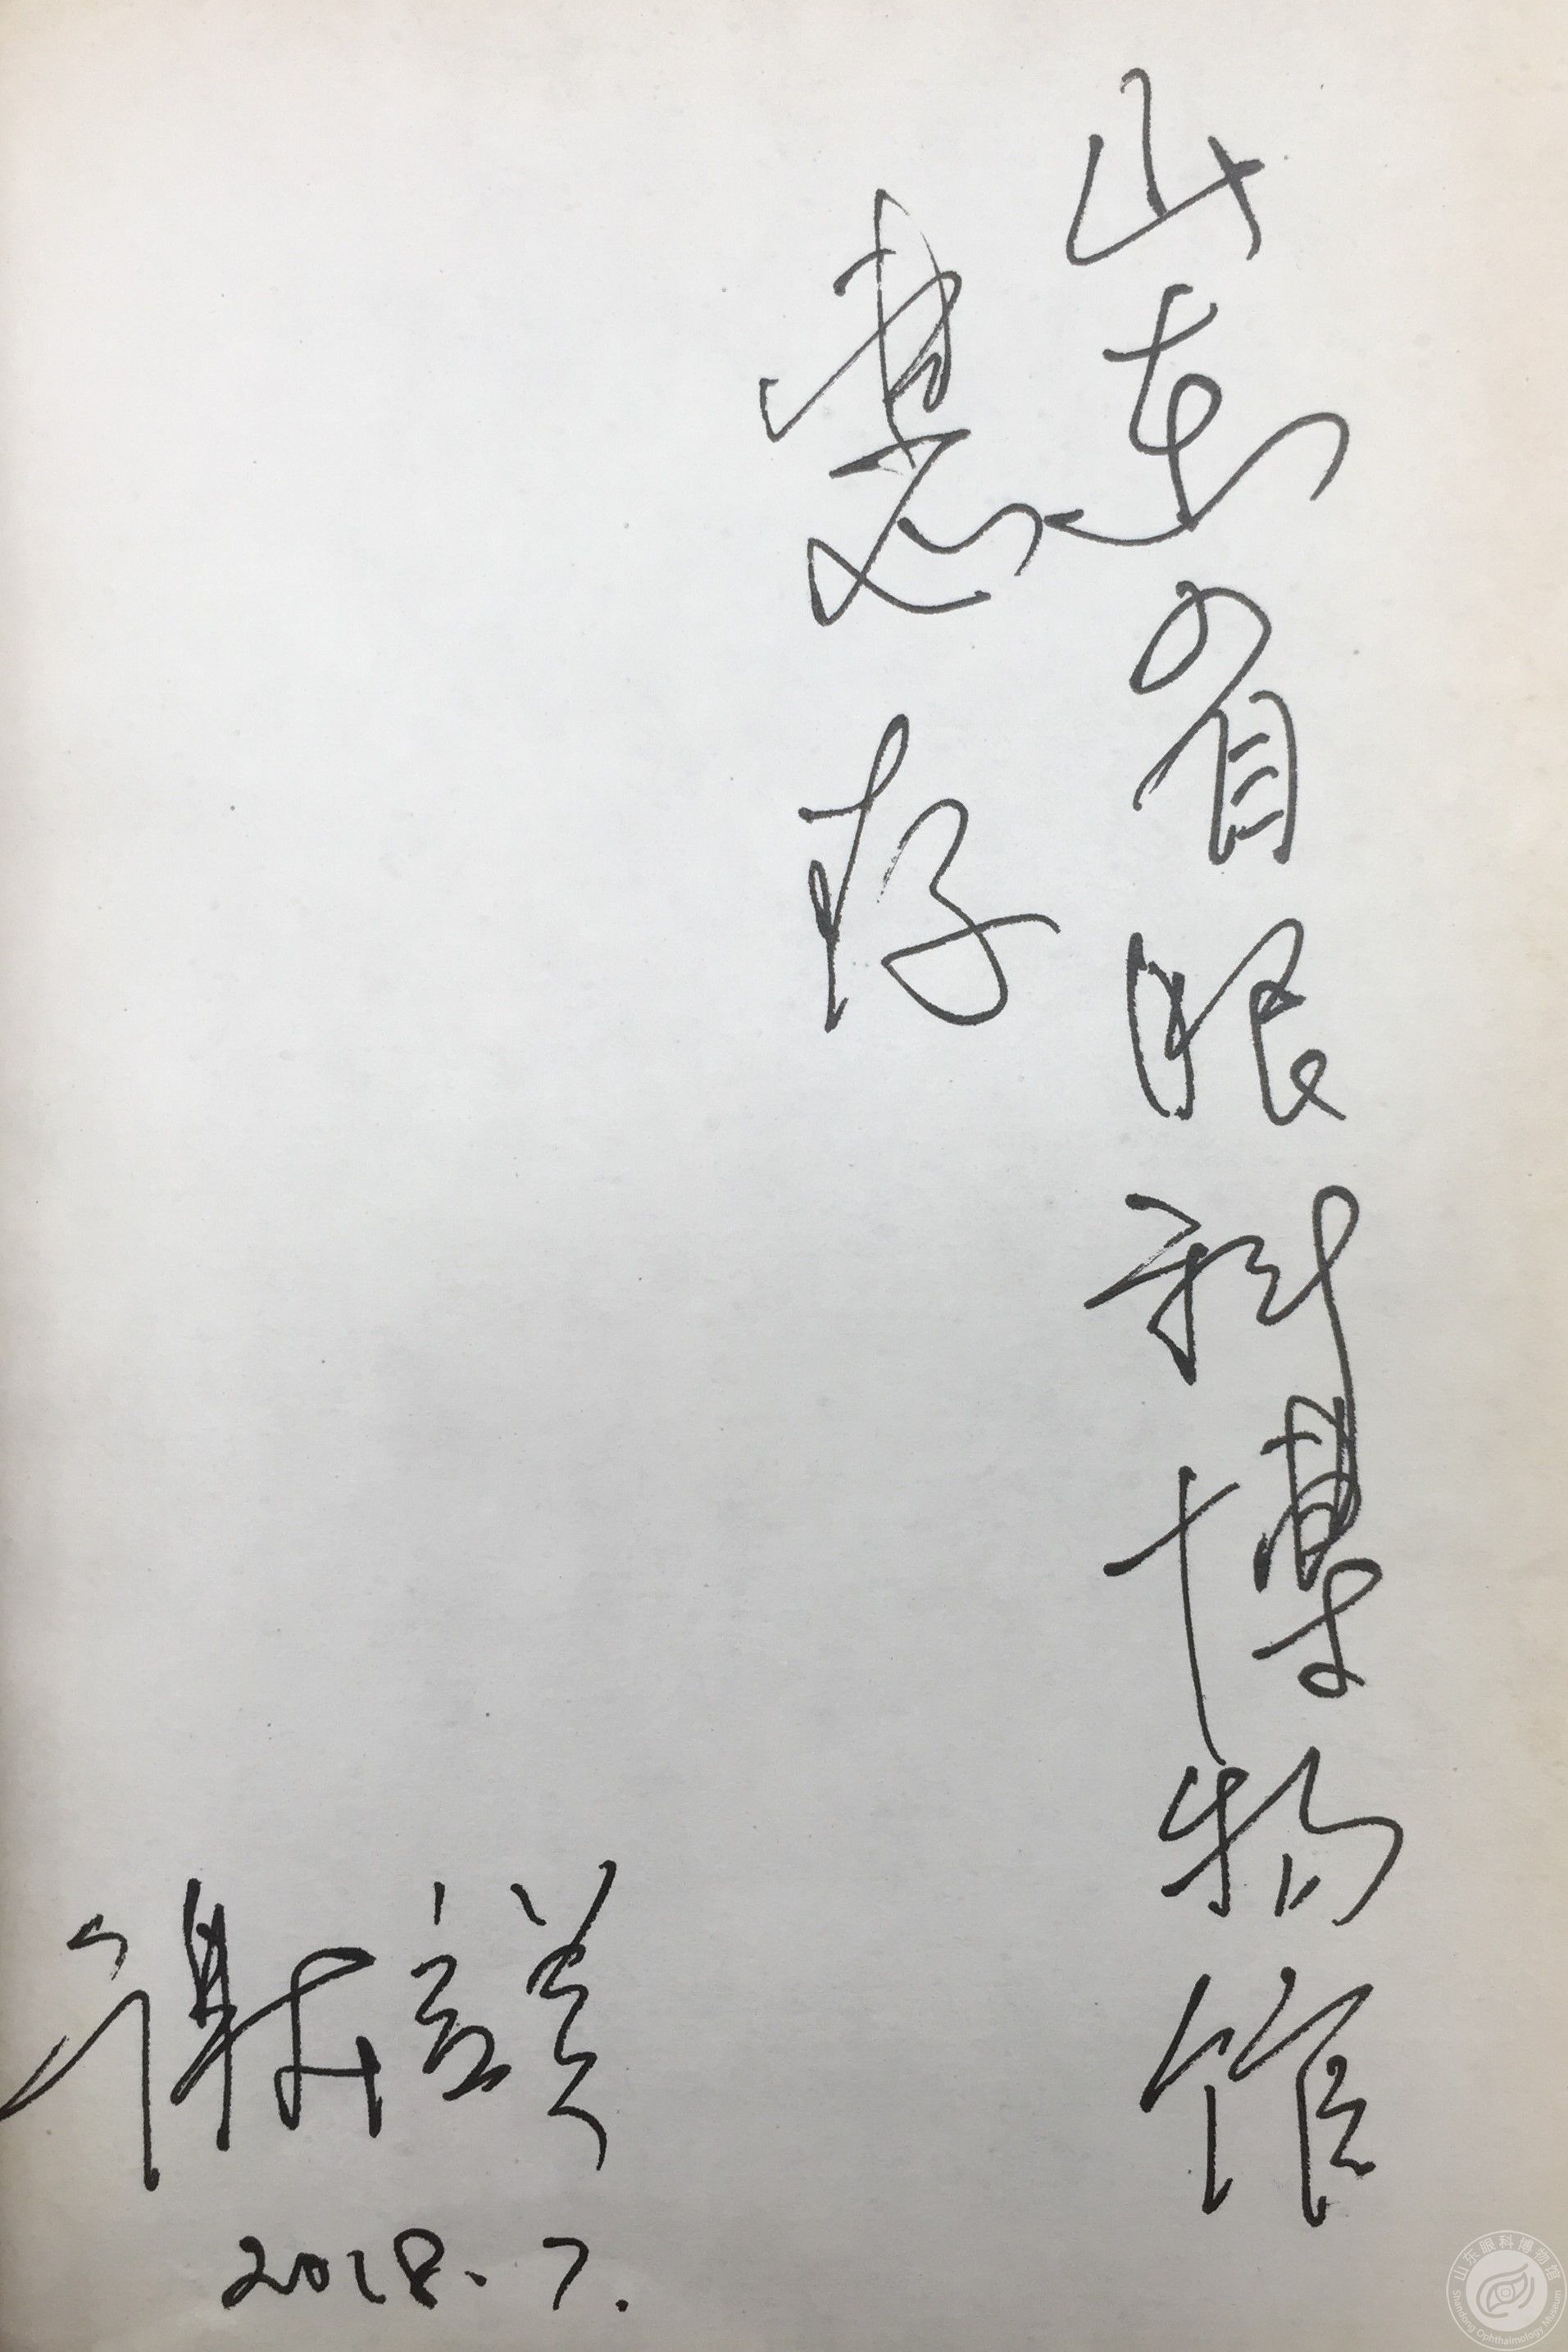 山东省眼科博物馆
惠存
谢立信
2018.7.
山东眼科博物馆
Shandong Ophthalmology Museum